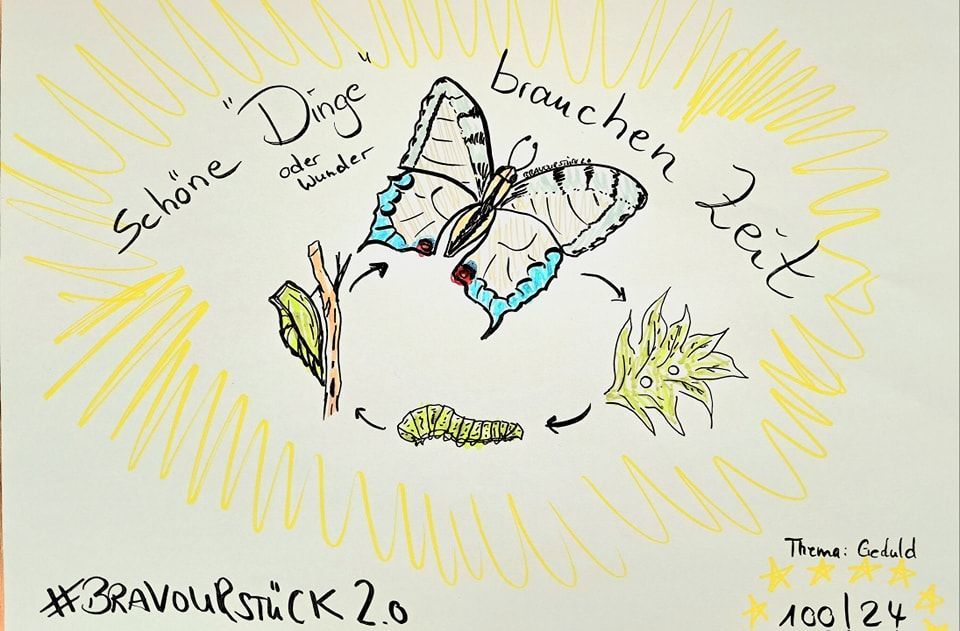 Schöne "Dinge" brauchen Zeit
oder
Wunder
BRAVOURSTÜCK 2.0
Thema: Geduld
#BRAVOURSTÜCK 2.0
100/24